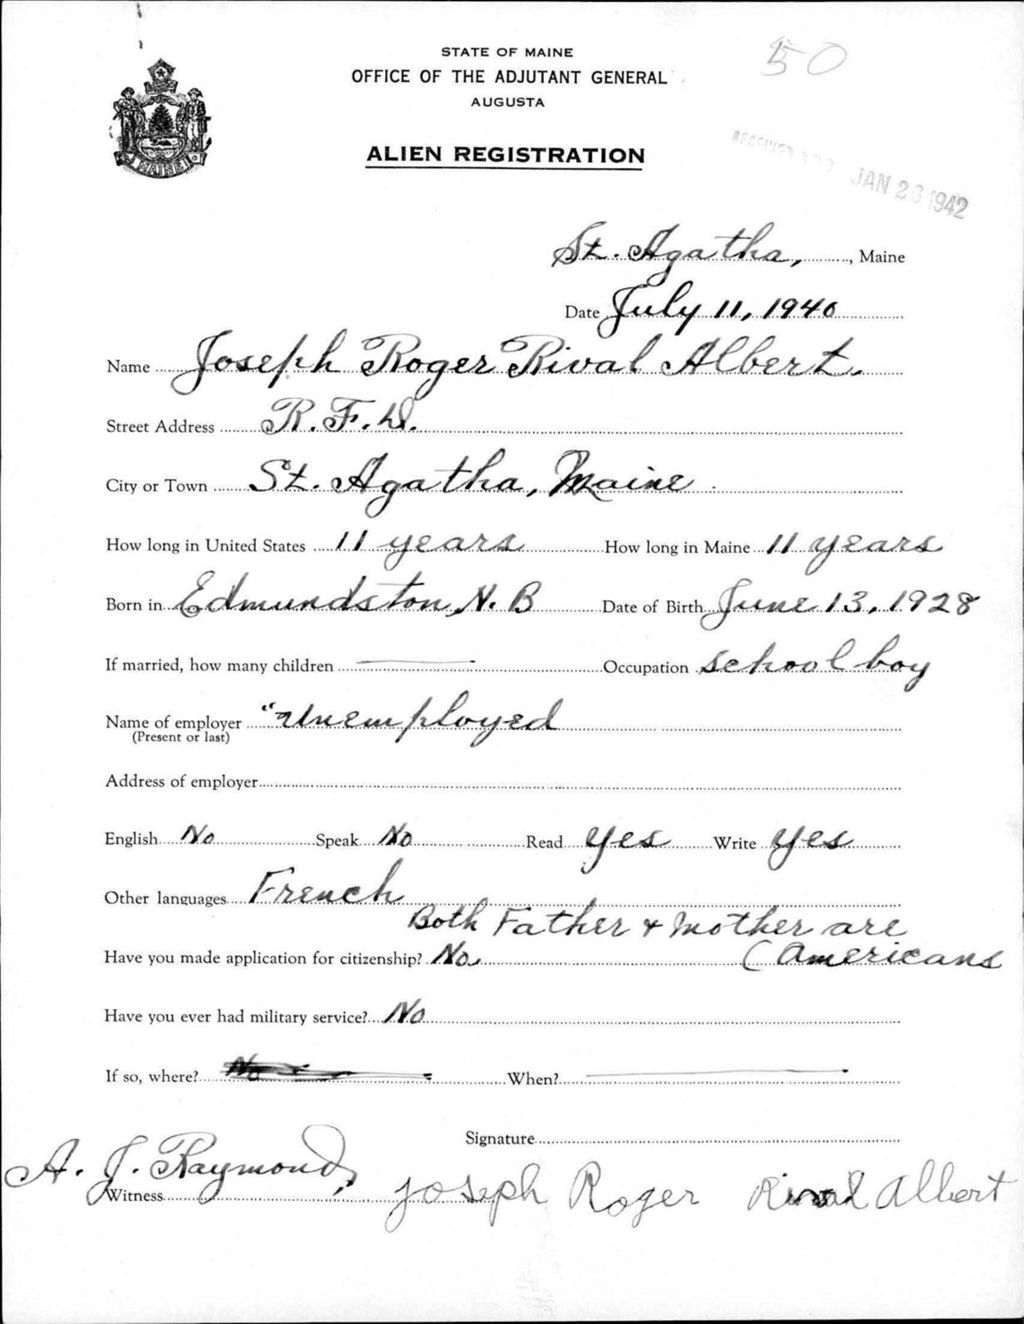 50
STATE OF MAINE
OFFICE OF THE ADJUTANT GENERAL
AUGUSTA
ALIEN REGISTRATION
RECEIVED
JAN 26 1942
MAINE
St. Agatha, , Maine
Date July 11, 1940
Name Joseph Roger Rival Albert.
Street Address R.F.D.
City or Town St. Agatha, Maine
How long in United States 11 years How long in Maine 11 years
Born in Edmundston, N.B Date of Birth June 13, 1928
If married, how many children — Occupation school boy
Name of employer "Unemployed
(Present or last)
Address of employer
English No Speak No Read Yes Write Yes
Other languages French
Both Father & Mother are
Have you made application for citizenship? No. (Americans
Have you ever had military service? No
If so, where? No When? —
Signature
A. J. Raymond,
Witness Joseph Roger Rival Albert